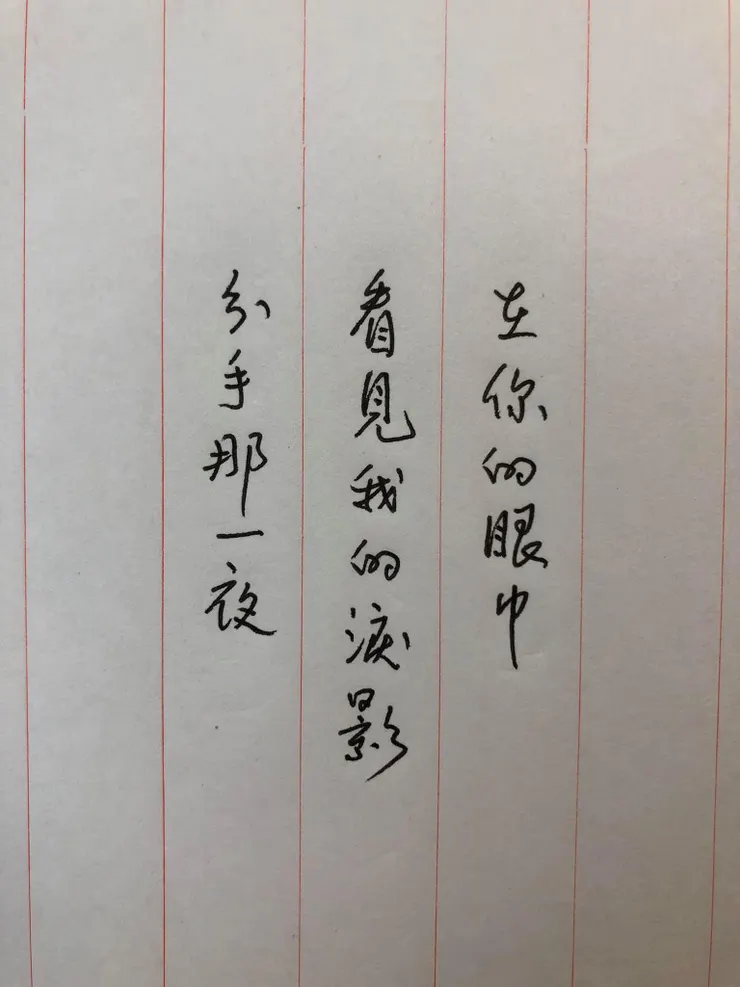 在你的眼中
看見我的淚影
分手那一夜